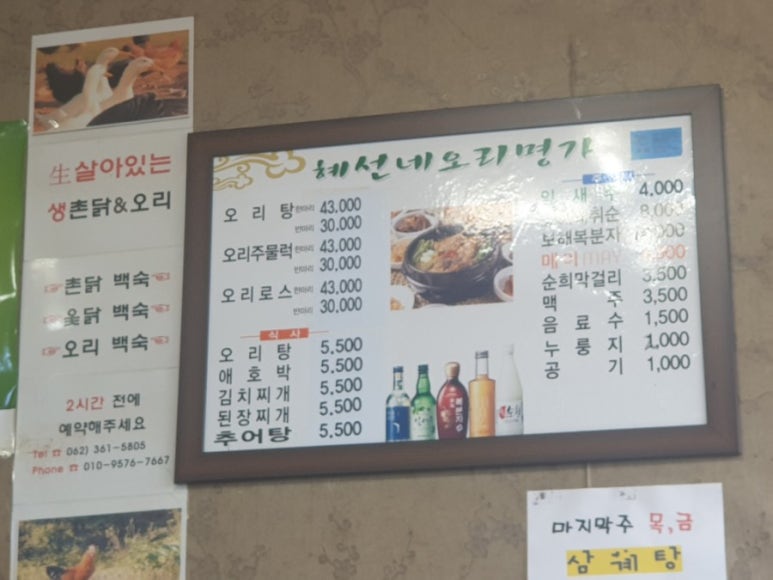 生살아있는
생촌닭&오리
촌닭 백숙
옻닭 백숙
오리 백숙
2시간 전에
예약해주세요
Tel ☎ 062) 361-5805
Phone ☎ 010-9576-7667
혜선네오리명가
오리탕 한마리 43,000
반마리 30,000
오리주물럭 한마리 43,000
반마리 30,000
오리로스 한마리 43,000
반마리 30,000
식사
오리탕 5,500
애호박 5,500
김치찌개 5,500
된장찌개 5,500
추어탕 5,500
잎새주 4,000
취순 8,000
보해복분자
순희막걸리 3,500
맥주 3,500
음료수 1,500
누룽지 1,000
공기 1,000
마지막주 목,금
삼계탕